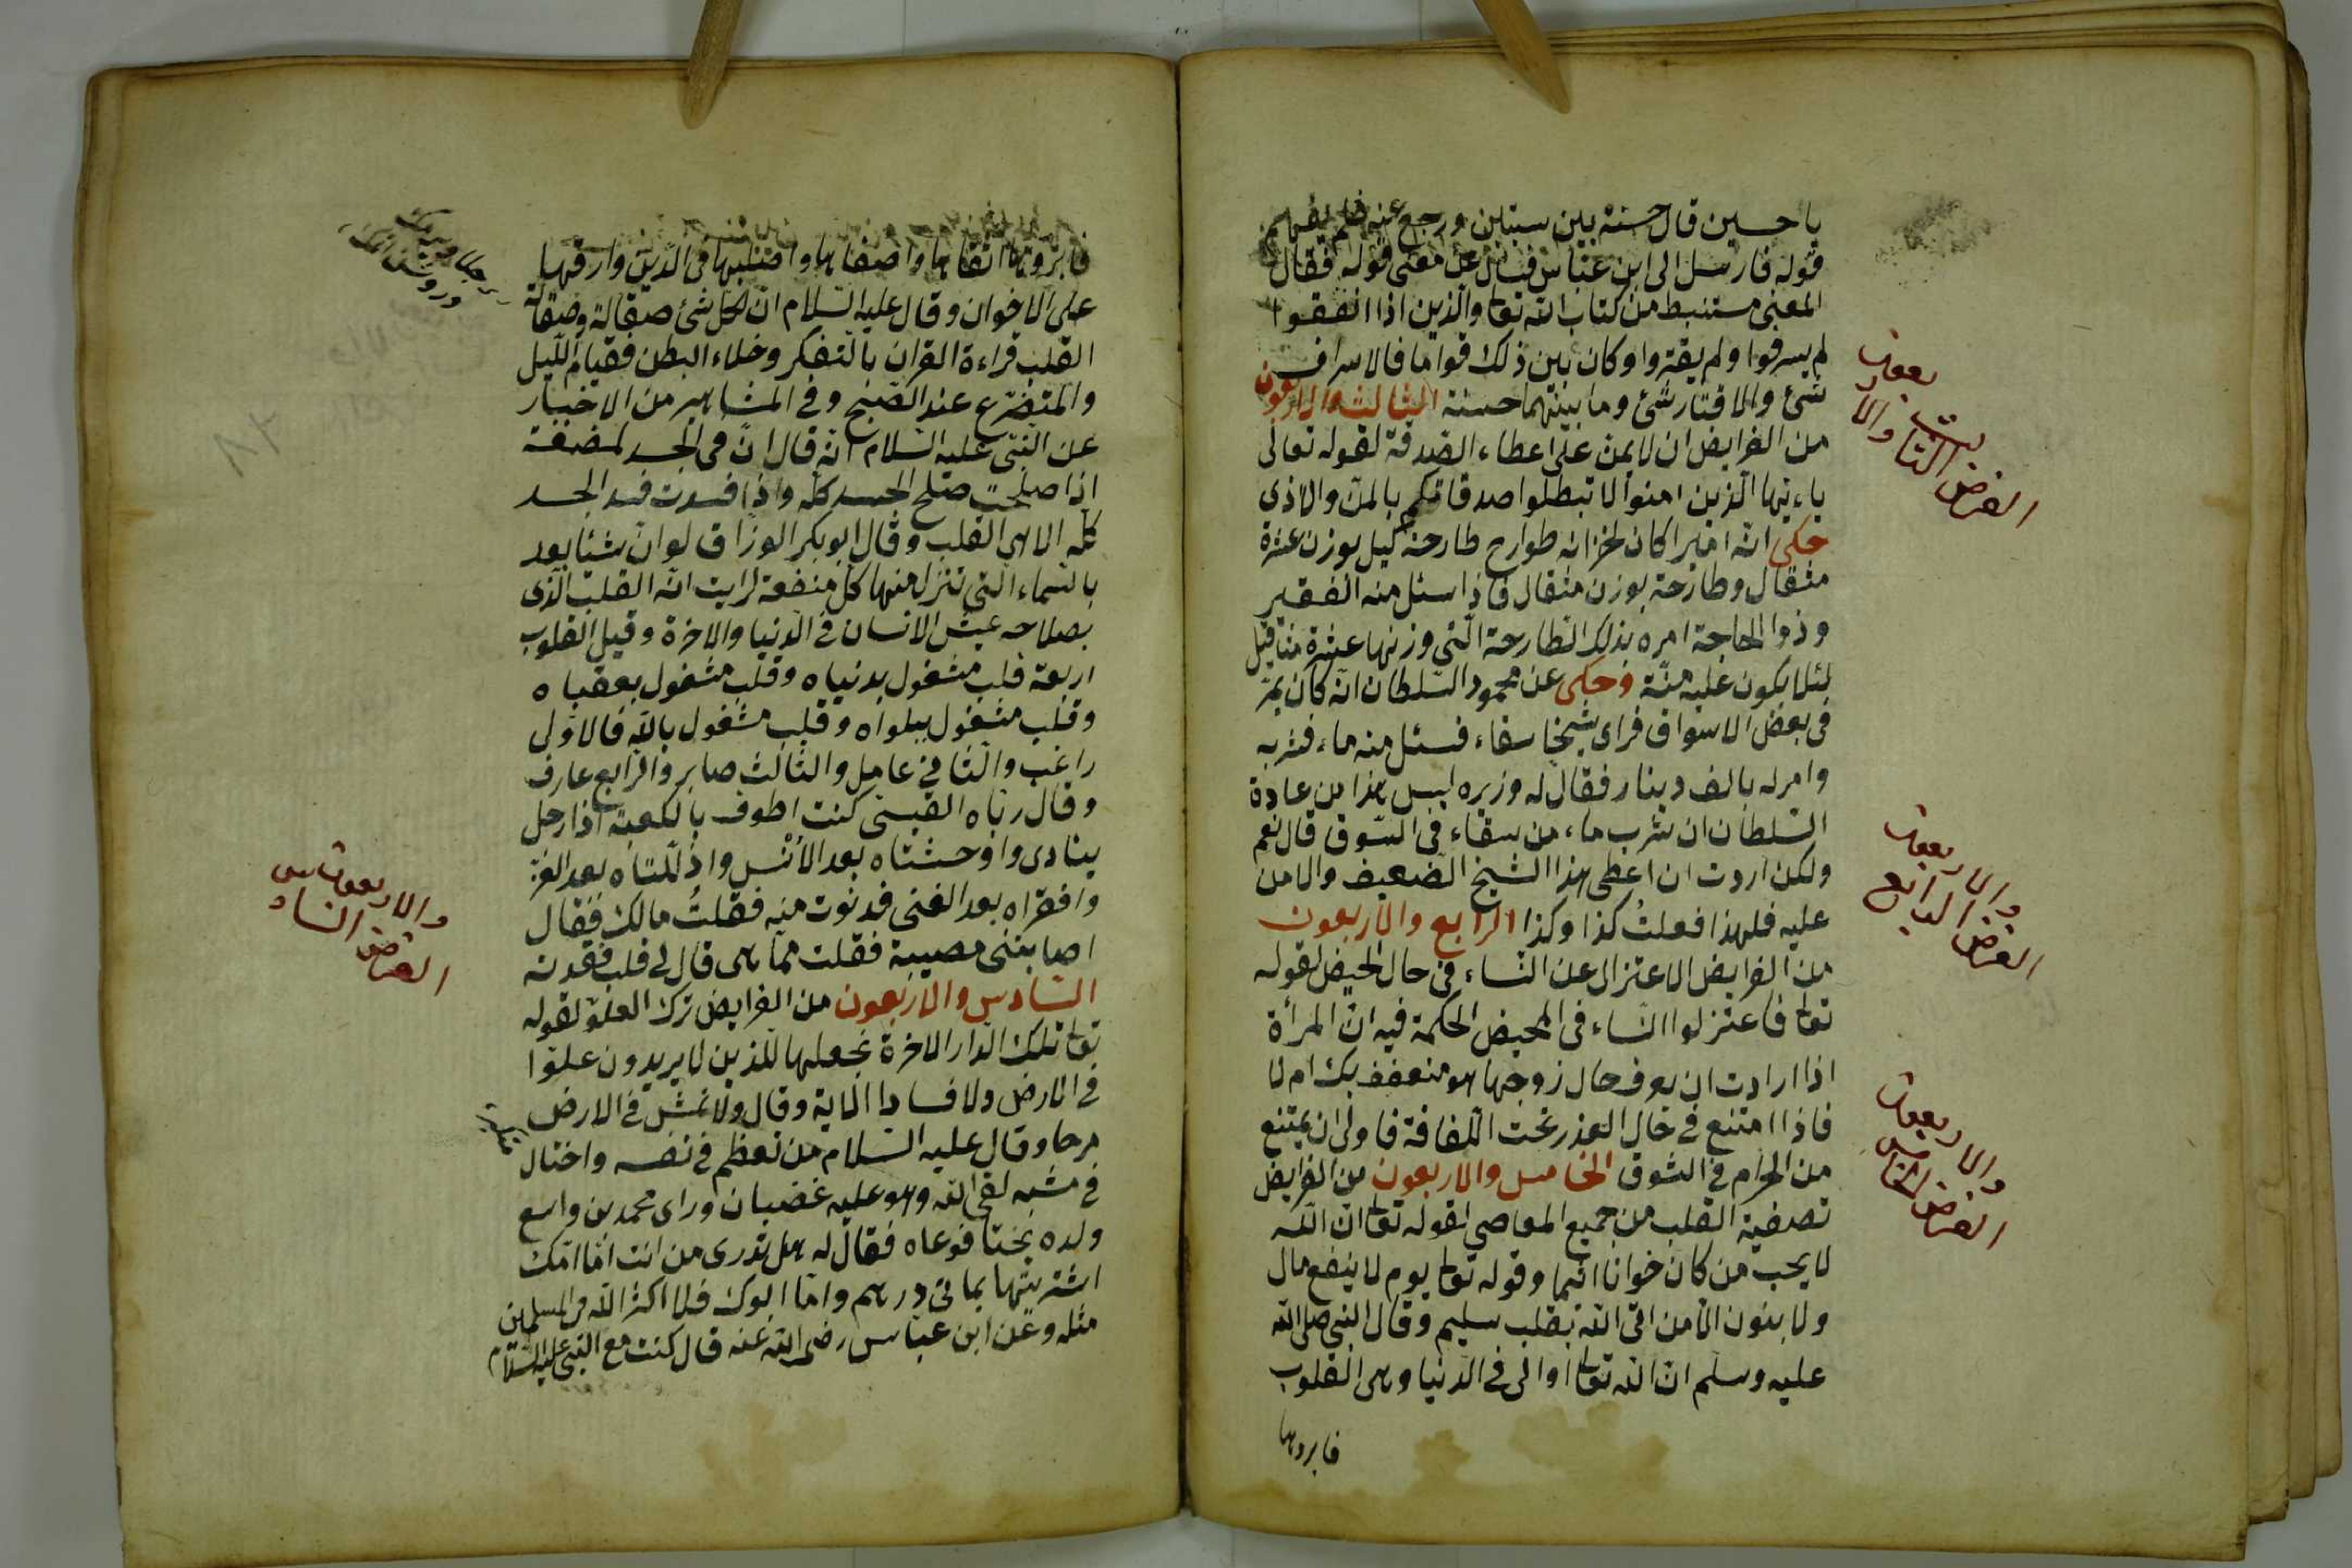 يا حسين قال حسنة بين سيئتين ورجع عنه فلم يفهم
قوله فارسل الى ابن عباس فسأل عن معنى قوله فقال
المعنى مستنبط من كتاب الله تعا والذين اذا انفقوا
لم يسرفوا ولم يقتروا وكان بين ذلك قواما فالاسراف
شئ والاقتار شئ وما بينهما حسنة الثالث والاربعون
من الفرايض ان لا يمن على اعطاء الصدقة لقوله تعالى
ياءيها الذين امنوا لا تبطلوا صدقاتكم بالمن والاذى
حكى ان اميرا كان لخزانه طوارح طارحة كيل بوزن عشرة
مثقال وطارحة بوزن مثقال فاذا سئل منه الفقير
وذوا الحاجة امره بذلك الطارحة التى وزنها عشرة مثاقيل
لئلا يكون عليه منّة وحكى عن محمود السلطان انه كان يمرّ
فى بعض الاسواق فراى شيخا سقاء فسئل منه ماء فشربه
وامر له بالف دينار فقال له وزيره ليس هذا من عادة
السلطان ان شرب ماء من سقاء فى السوق قال نعم
ولكن اردت ان اعطى هذا الشيخ الضعيف والامن
عليه فلهذا فعلتُ كذا وكذا الرابع والاربعون
من الفرايض الاعتزال عن النساء فى حال الحيض لقوله
تعا فاعتزلوا النساء فى المحيض الحكمة فيه ان المرأة
اذا ارادت ان يعرف حال زوجها هو متعفف بك ام لا
فاذا امتنع فى حال العذر تحت اللفافة فاولى ان يمتنع
من الحرام فى السوق الخامس والاربعون من الفرايض
تصفية القلب من جميع المعاصى لقوله تعا ان الله
لا يحب من كان خوانا اثيما وقوله تعا يوم لا ينفع مال
ولا بنون الا من اتى الله بقلب سليم وقال النبى صلى الله
عليه وسلم ان الله تعا اوانى فى الدنيا وهى القلوب
فابروها
الفرض الثالث والاربعون
الفرض الرابع والاربعون
الفرض الخامس والاربعون
فابروها اتقاها واصفاها واصلبها فى الدين وارقها
على الاخوان وقال عليه السلام ان لكل شئ صقالة وصقالة
القلب قراءة القران بالتفكر وخلاء البطن فقيام الليل
والتضرع عند الصبح وفى المشاهير من الاخبار
عن النبى عليه السلام انه قال ان فى الجسد لمضغة
اذا صلحت صلح الجسد كله واذا فسدت فسد الجسد
كله الا هى القلب وقال ابو بكر الوراق لو ان شئا يعد
بالسماء التى تنزل منها كل منفعة لرايت انه القلب الذى
بصلاحه عيش الانسان فى الدنيا والاخرة وقيل القلوب
اربعة قلب مشغول بدنياه وقلب مشغول بعقباه
وقلب مشغول ببلواه وقلب مشغول بالله فالاولى
راغب والثانى عامل والثالث صابر والرابع عارف
وقال رباه القيسى كنت اطوف بالكعبة اذا رجل
ينادى واوحشتاه بعد الانس واذلتاه بعد العز
وافقراه بعد الغنى فدنوت منه فقلتُ مالك فقال
اصابتنى مصيبة فقلت مما هى قال لى قلب فقدته
السادس والاربعون من الفرايض ترك العلو لقوله
تعا تلك الدار الاخرة نجعلها للذين لا يريدون علوا
فى الارض ولا فسادا الاية وقال ولا تمش فى الارض
مرحا وقال عليه السلام من تعظم فى نفسه واختال
فى مشيه لقى الله وهو عليه غضبان وراى محمد بن واسع
ولده يختا فوعاه فقال له هل تدرى من انت اما امك
اشتريتها بمائى درهم واما ابوك فلا اكثر الله فى المسلمين
مثله وعن ابن عباس رضى الله عنه قال كنت مع النبى عليه السلام
الفرض السادس والاربعون